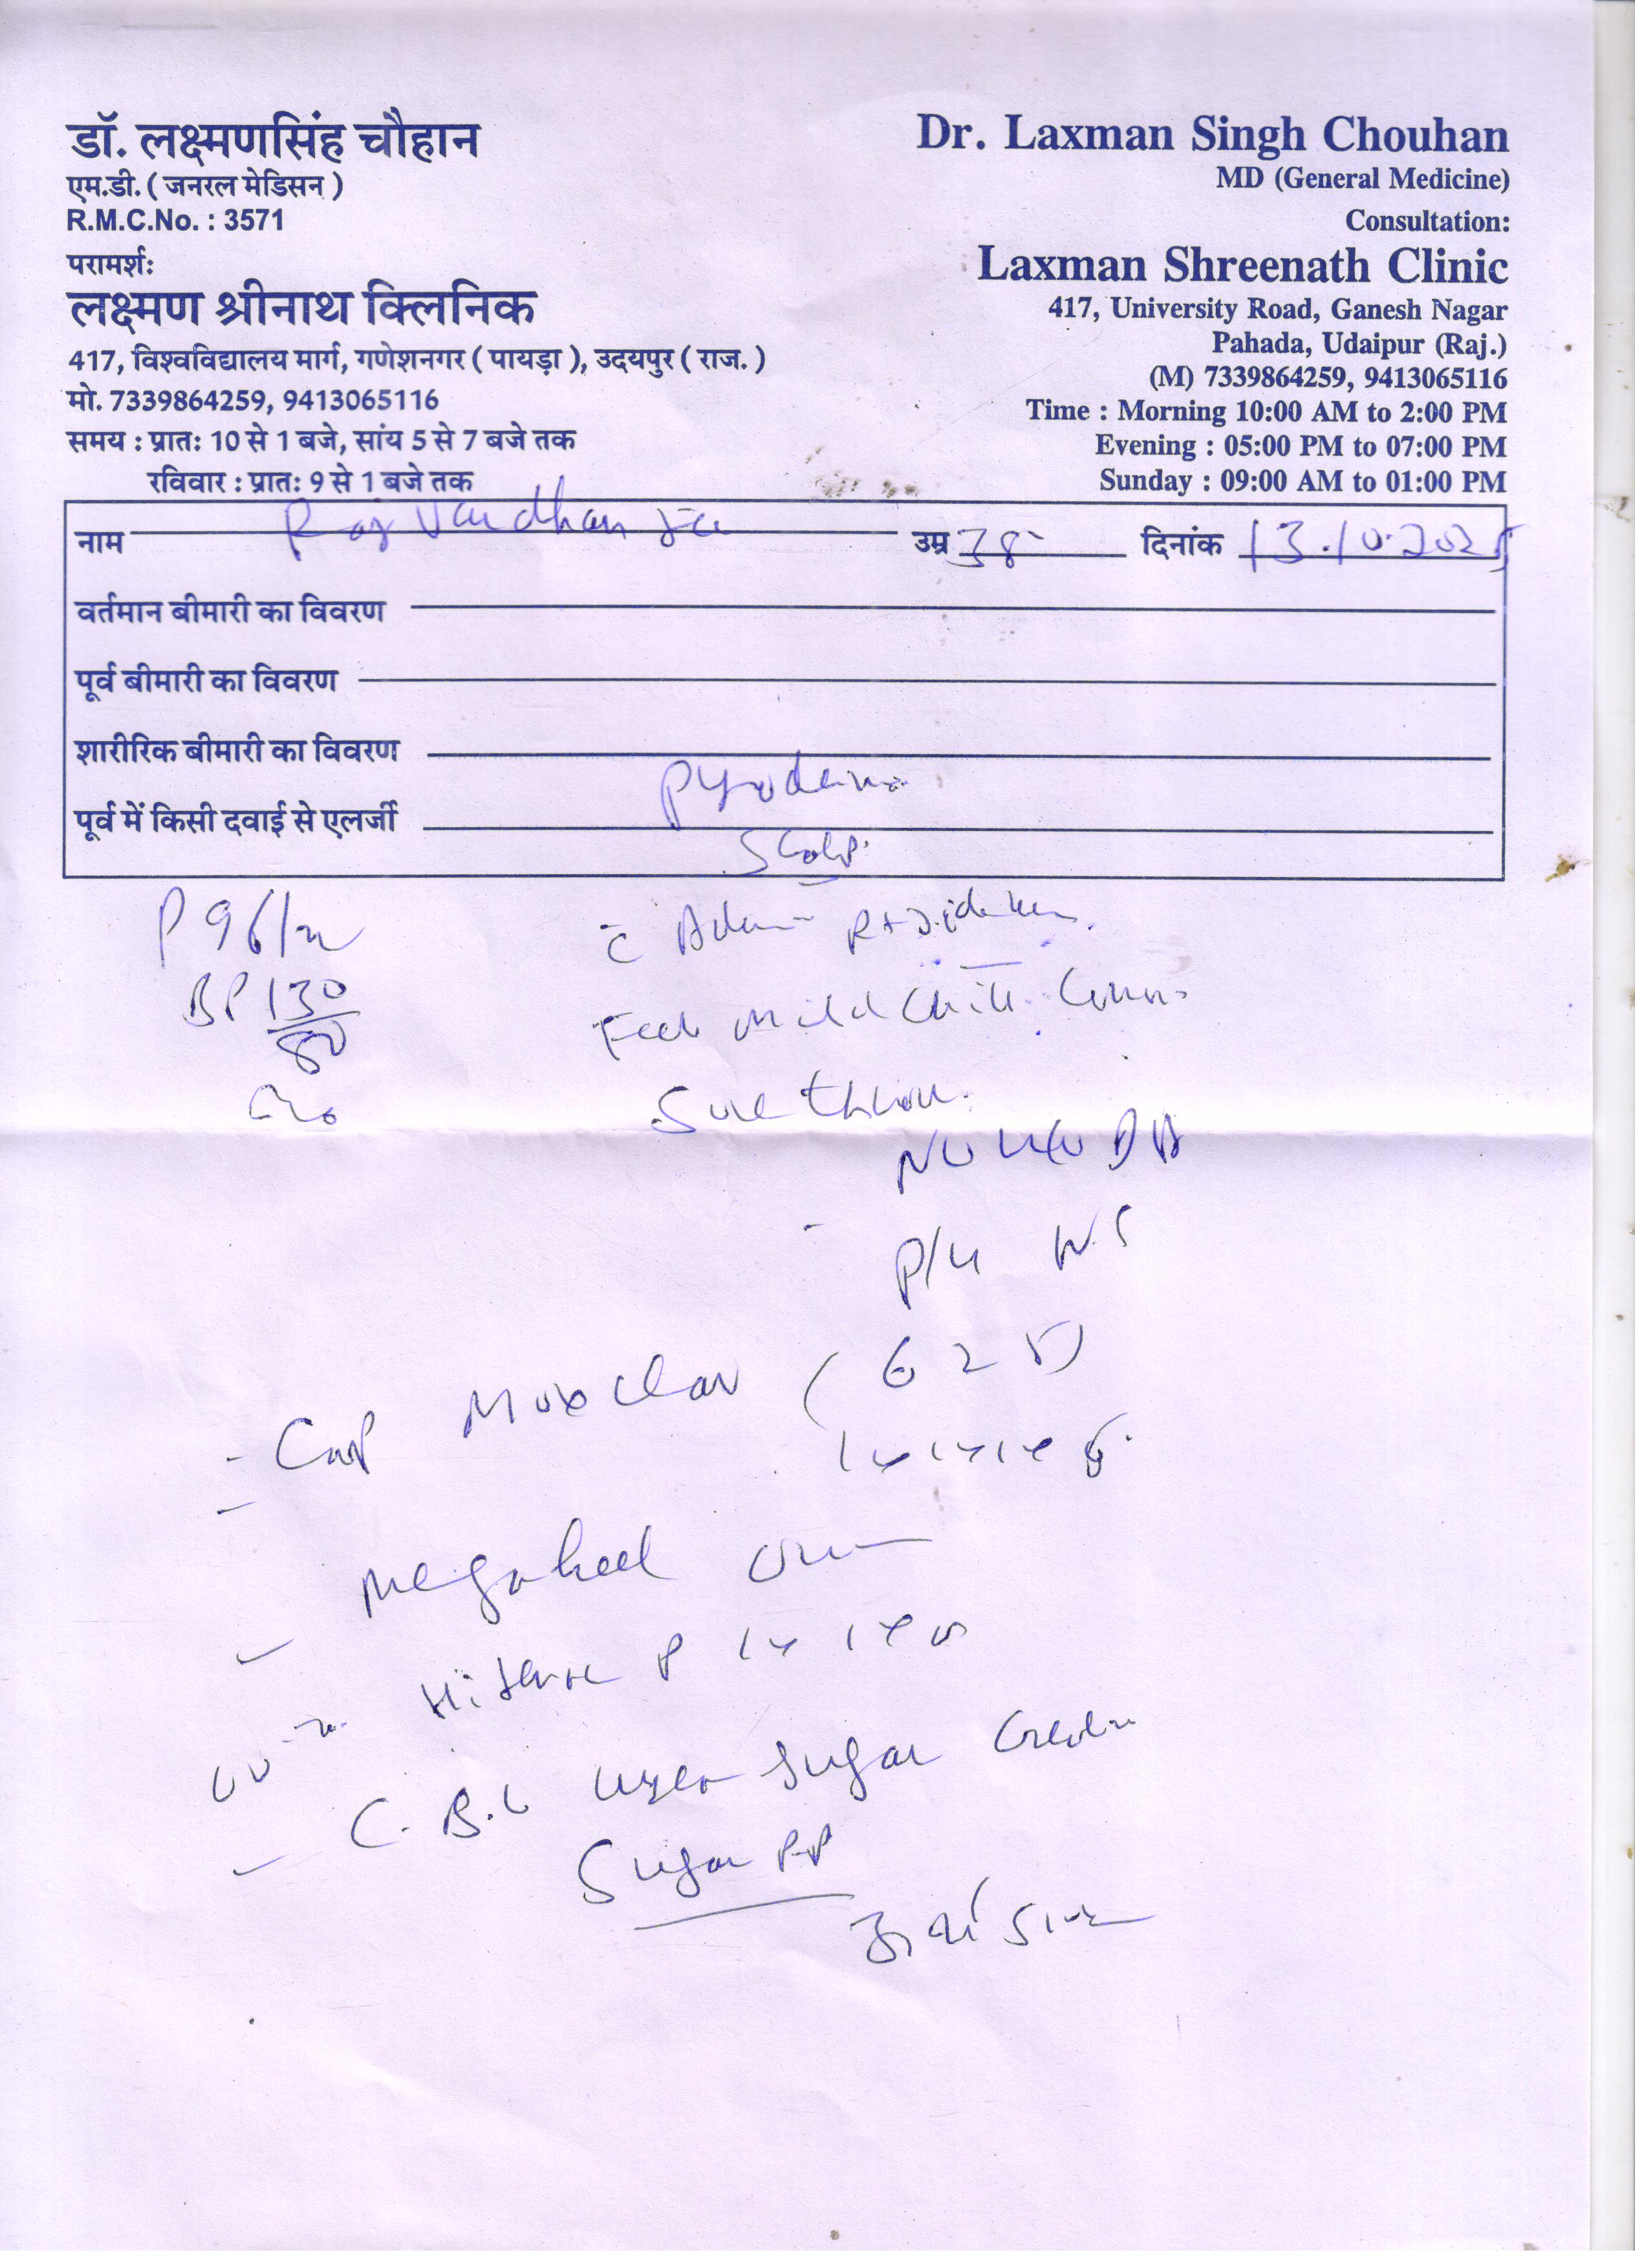 डॉ. लक्ष्मणसिंह चौहान
एम.डी. ( जनरल मेडिसन )
R.M.C.No. : 3571
परामर्शः
लक्ष्मण श्रीनाथ क्लिनिक
417, विश्वविद्यालय मार्ग, गणेशनगर ( पायड़ा ), उदयपुर ( राज. )
मो. 7339864259, 9413065116
समय : प्रातः 10 से 1 बजे, सांय 5 से 7 बजे तक
रविवार : प्रातः 9 से 1 बजे तक
Dr. Laxman Singh Chouhan
MD (General Medicine)
Consultation:
Laxman Shreenath Clinic
417, University Road, Ganesh Nagar
Pahada, Udaipur (Raj.)
(M) 7339864259, 9413065116
Time : Morning 10:00 AM to 2:00 PM
Evening : 05:00 PM to 07:00 PM
Sunday : 09:00 AM to 01:00 PM
नाम Raj Vardhan उम्र 38 दिनांक 13.10.2025
वर्तमान बीमारी का विवरण
पूर्व बीमारी का विवरण
शारीरिक बीमारी का विवरण
Pyoderma
पूर्व में किसी दवाई से एलर्जी
Scalp
P 96/m
BP 130/80
Feels mild chill
Sore throat
P/H
- Cap Moxclav (625)
1x1x1x6
Megaheal
P 1x1x5
C.B.C Urea Sugar
Sugar PP